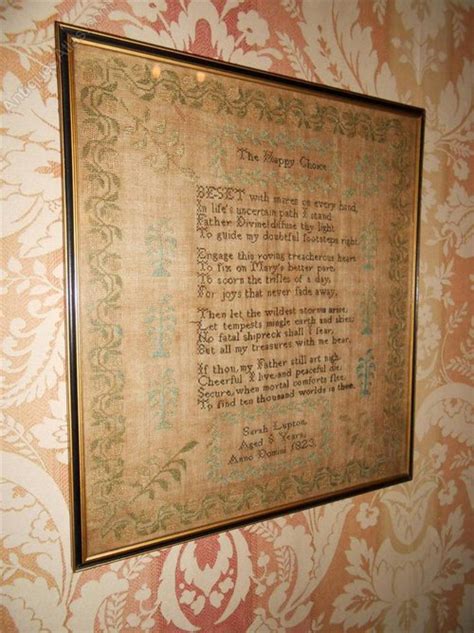 The Happy Choice
BESET with snares on every hand,
In life's uncertain path I stand
Father Divine diffuse thy light
To guide my doubtful footsteps right.
Engage this roving treacherous heart
To fix on Mary's better part,
To scorn the trifles of a day,
For joys that never fade away,
Then let the wildest storms arise,
Let tempests mingle earth and skies:
No fatal shipreck shall I fear,
But all my treasures with me bear,
If thou, my Father still art nigh
Cheerful I live, and peaceful die:
Secure, when mortal comforts flee,
To find ten thousand worlds in thee.
Sarah Lupton
Aged 8 Years,
Anno Domini 1823.